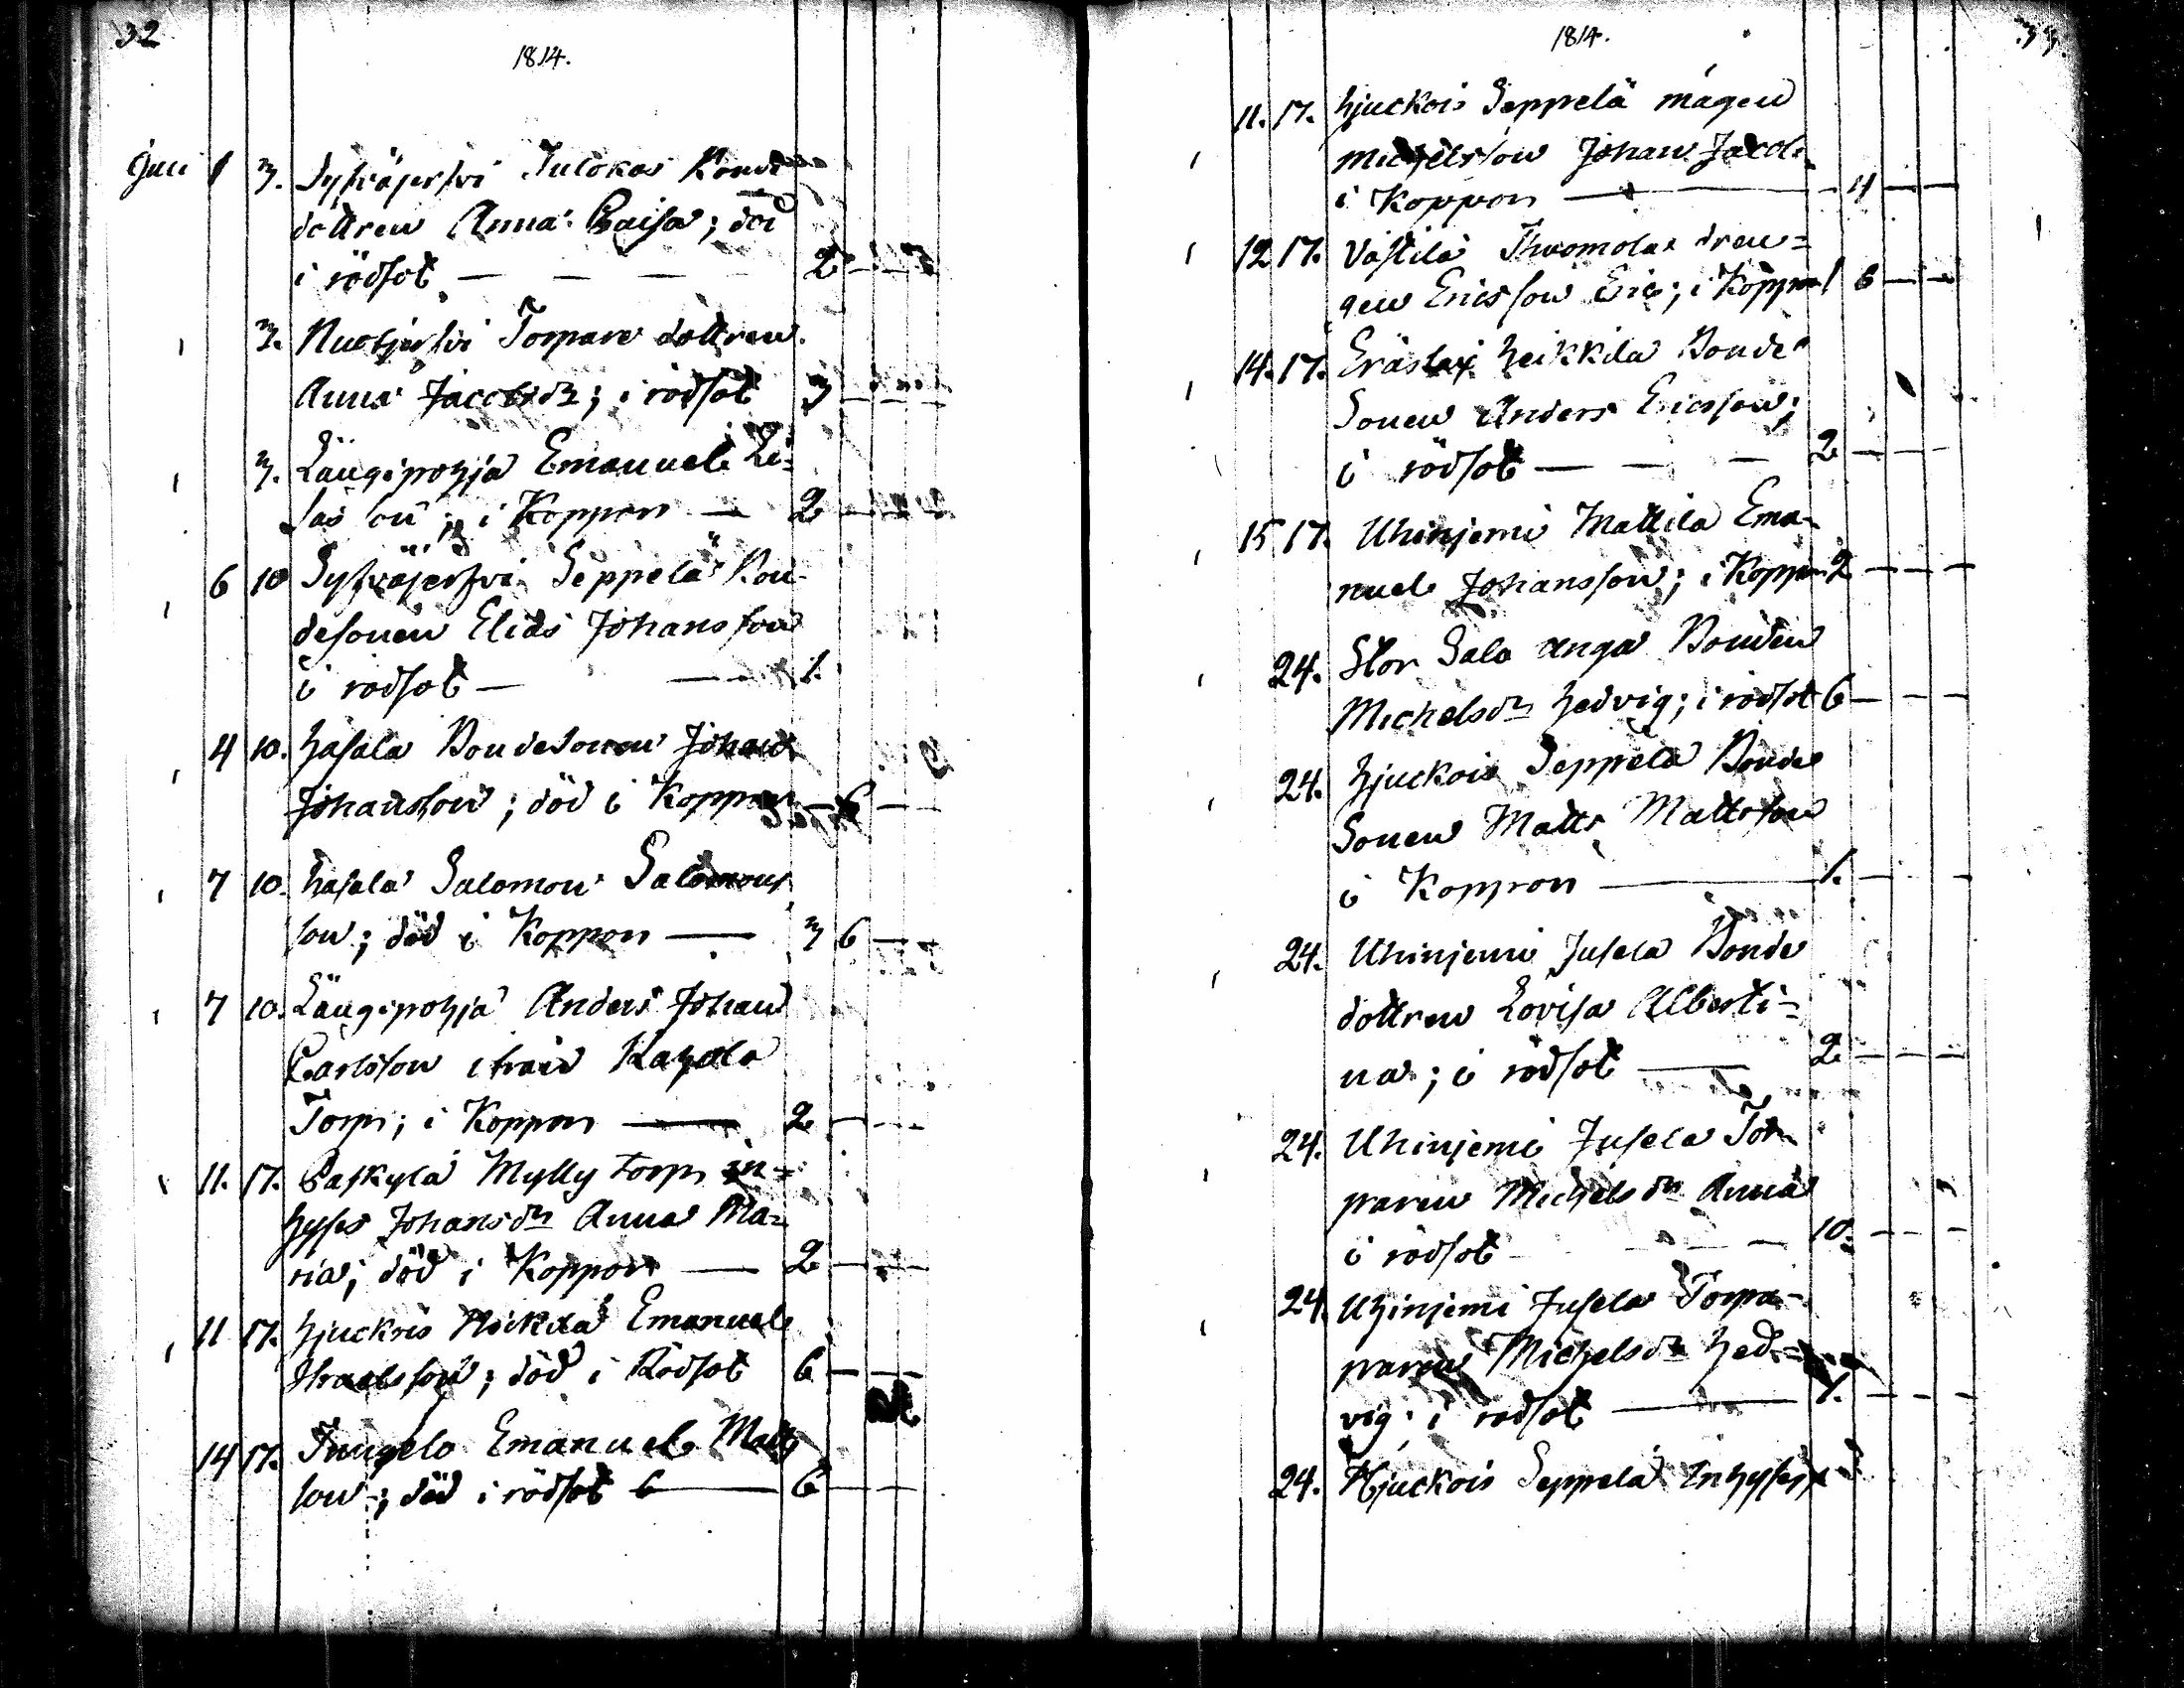 32
1814.
Juli 1 3. Syväjerfvi Julokas Bonde
dottren Anna Caisa; död
i rödsot — — — 2 — — —
3. Ruotjerfvi Torpare dottren
Anna Jacobsdr; i rödsot 3 — — —
3. Längipohja Emanuel Eli=
sas son; i Koppon — 2 — — —
6 10 Syväjerfvi Seppelä Bon-
desonen Elias Johansson
i rodsot — — 1.
4 10. Hasala Bondesonen Johan
Johansson; död i Koppon — 6 —
7 10. hasala Salomon Salomons
son; död i Koppon — 3 6 — —
7 10. Längipohja Anders Johan
Carlsson ifrån Kahala
Torp; i Koppon — 2 — — —
11. 17. Paskylä Mylly torp in=
hyses Johansdr Anna Ma=
ria; död i Koppon — 2 — — —
11 17. hjuckois Heikilä Emanuel
Israelsson; död i Rödsot 6 — — —
14 17. Emanuel Matts
son; död i rödsot 6 — 6 — —
33
1814.
11. 17. hjuckois Seppelä mågen
Michelsson Johan Jacob
i Koppon — 4 — —
12 17. Västilä Thuomolas dren=
gen Ericsson Eric; i Koppon 1 6 — —
14. 17. Eräslax heikkila Bonde
Sonen Anders Ericsson;
i rödsot — — — 2 — — —
15 17. Uhinjemi Mattila Ema-
nuel Johansson; i Koppon 2 — — —
24. Stor Sala unga Bonden
Michelsdr Hedvig; i rodsot 6 — — —
24. hjuckois Seppelä Bonde
Sonen Matts Mattsson
i Koppon — 1. — — —
24. Uhinjemi Jusela Bonde
dottren Lovisa Alberti=
na; i rödsot — 2 — — —
24. Uhinjemi Jusela Tor-
paren Michelsdr Anna
i rodsot — — 10. — — —
24. Uhinjemi Jusela Torpa-
paren Michelsdr Hed=
vig; i rodsot — 1. — — —
24. Hjuckois Seppelä Inhyses